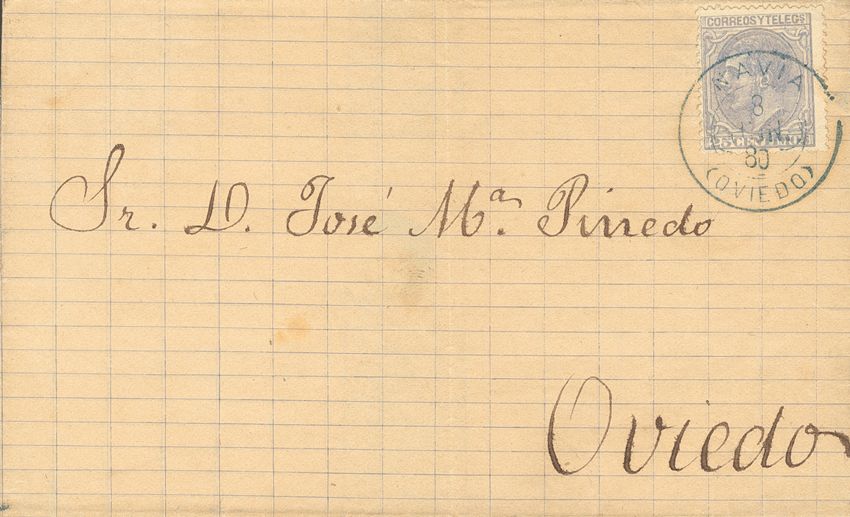 CORREOS Y TELEGS
NAVIA
8
JUN.
80
(OVIEDO)
Sr. D. José Mª. Pinedo
Oviedo